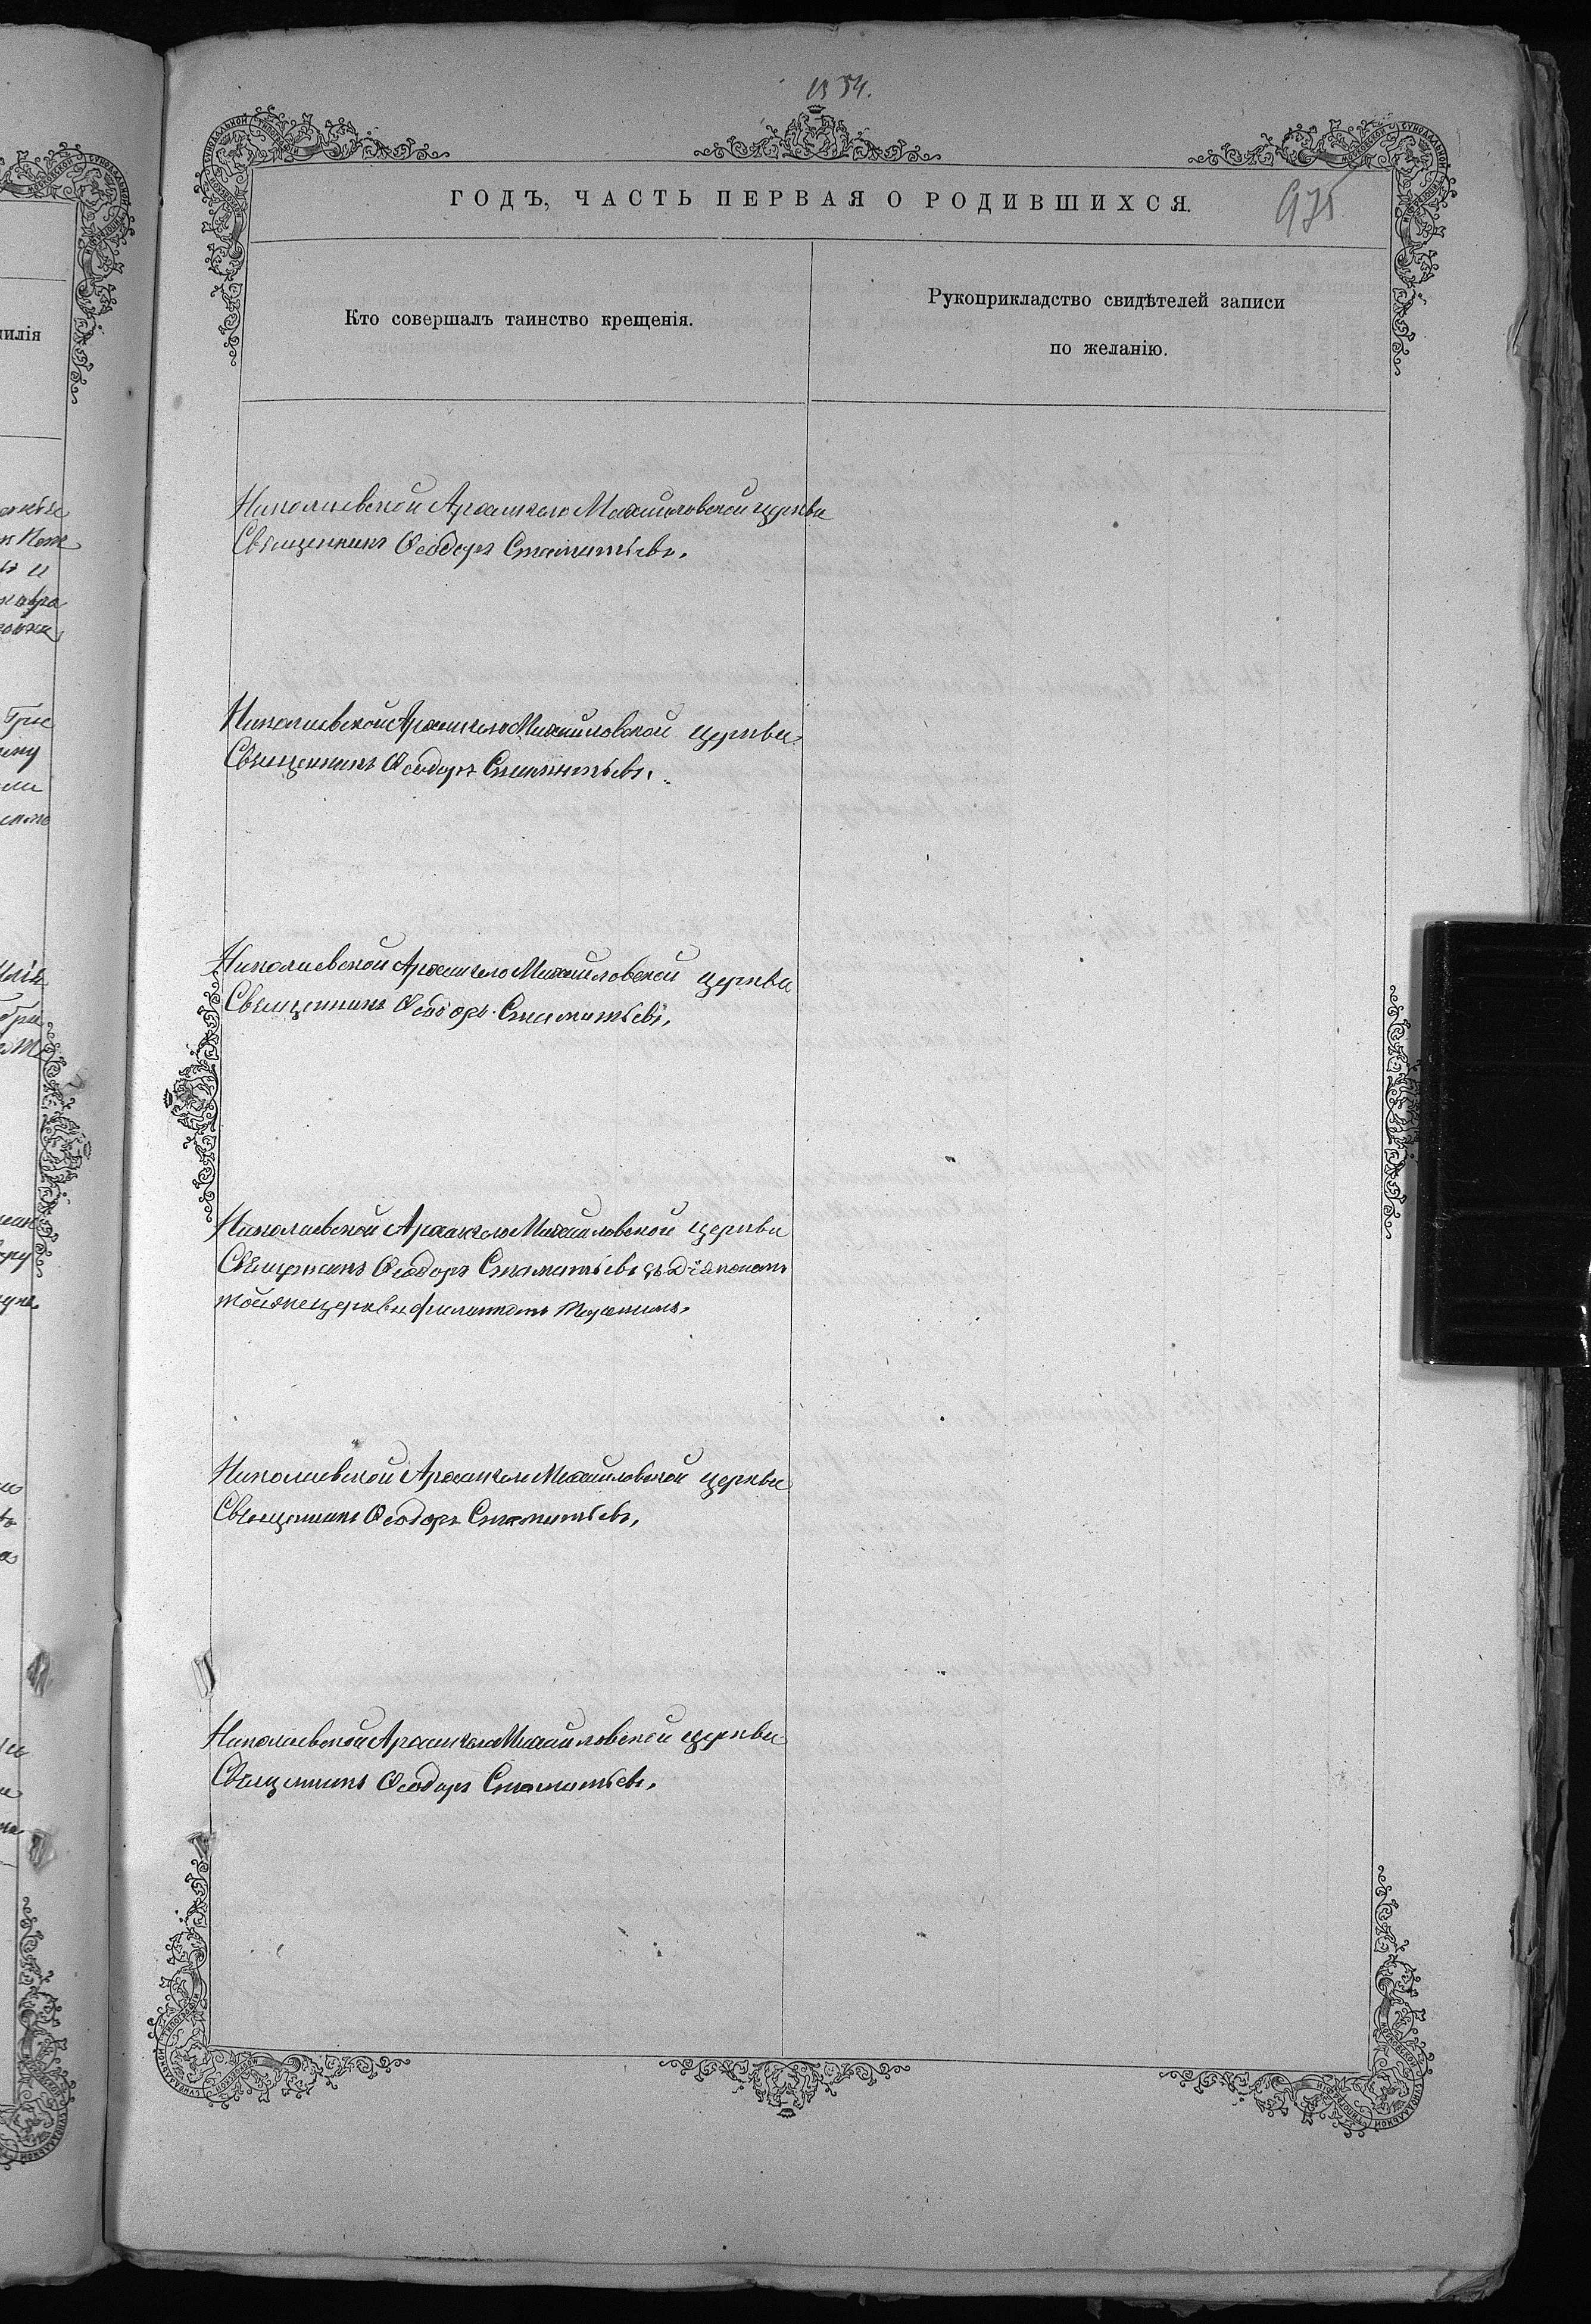 1854.
ГОДЪ, ЧАСТЬ ПЕРВАЯ О РОДИВШИХСЯ.
975
Кто совершалъ таинство крещенія.
Рукоприкладство свидѣтелей записи
по желанію.
Николаевской Архангело Михайловской церкви
Священникъ Ѳеодоръ Стаматьевъ.
Николаевской Архангело Михайловской церкви
Священникъ Ѳеодоръ Стаматьевъ.
Николаевской Архангело Михайловской церкви
Священникъ Ѳеодоръ Стаматьевъ.
Николаевской Архангело Михайловской церкви
Священникъ Ѳеодоръ Стаматьевъ съ діакономъ
тойже церкви
Николаевской Архангело Михайловской церкви
Священникъ Ѳеодоръ Стаматьевъ.
Николаевской Архангело Михайловской церкви
Священникъ Ѳеодоръ Стаматьевъ.